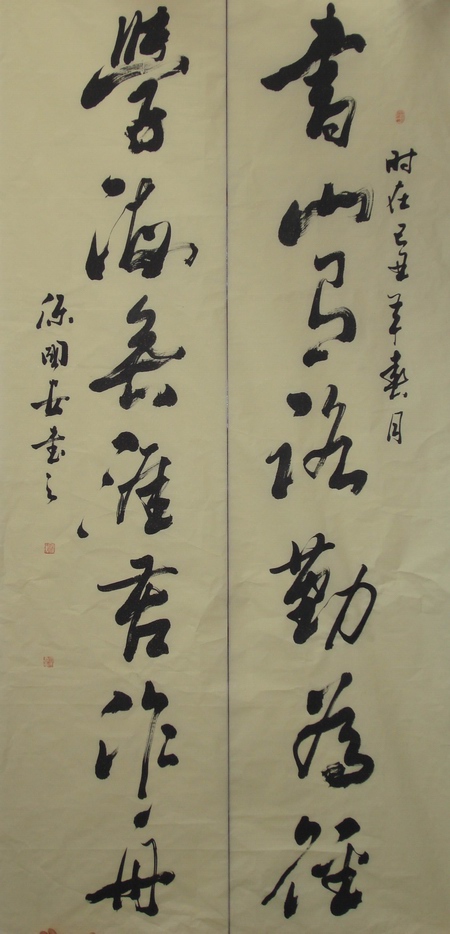 时在己丑年月
書山有路勤為徑
學海無涯苦作舟
書之